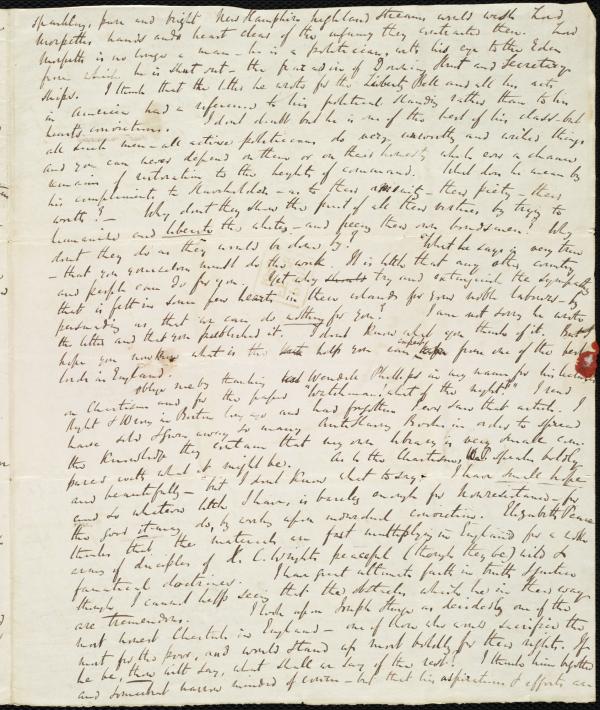 sparkling, pure and bright New Hampshire highland streams would wash Lord
Morpeths hands and heart clear of the infamy they contracted there. Lord
Morpeth is no longer a man - he is a politician, with his eye to the Eden
from which he is shut out - the paradise of Downing Street and Secretary
ships. I think that the letter he wrote for the Liberty Bell and all his acts
in America had a reference to his political standing rather than to his
hearts convictions. I dont doubt but he is one of the best of his class - but
all such men - all active politicians do very unworthy and wicked things
and you can never depend on them or on their honesty while ever a chance
remains of restoration to the heights of command. What does he mean by
his compliments to slaveholders - as to their - their piety - their
worth? - Why dont they show the fruit of all their virtues by trying to
humanise and liberate the whites - and freeing their own bondsmen? Why
dont they do as they would be done by? What he says is very true
- that you yourselves must do the work. It is little that any other country
and people can do for you. Yet why try and extinguish the sympathy
that is felt in some few hearts in these islands for your noble labours - by
persuading us, that we can do nothing for you? I am not sorry he wrote
the letter and that you published it. I dont know what you think of it. But I
hope you now know what is the help you can expect from one of the best
lords in England.
oblige me by thanking Wendell Phillips in my name for his lecture
on Chartism and for the paper "Watchman, what of the night?" I read
Hight & Wing in Boston long ago and had forgotten I ever saw that article. I
have sold & given away so many AntiSlavery Books in order to spread
the knowledge they contain that my own library is very small com
pared with what it might be. As to the Chartism, speaks boldly
and beautifully - but I dont know what to say - I have small hope
and so whatever little I have, is barely enough for Nonresistance - for
the good it may do, by working upon individual conviction. Elizabeth Pease
thinks that the materials are fast multiplying in England for a
of disciples of H. C. Wrights peaceful (though they be) wild &
fanatical doctrines. I have great ultimate faith in truth & justice
though I cannot help seeing that the obstacles which lie in their way
are tremendous. I look upon Joseph Sturge as decidedly one of the
most honest Chartists in England - one of those who would sacrifice the
most for the poor, and would stand up most boldly for their rights. If
he be, then with say, what shall we say of the rest? I think him bigotted
and somewhat narrow minded of course - but that his aspirations & efforts are